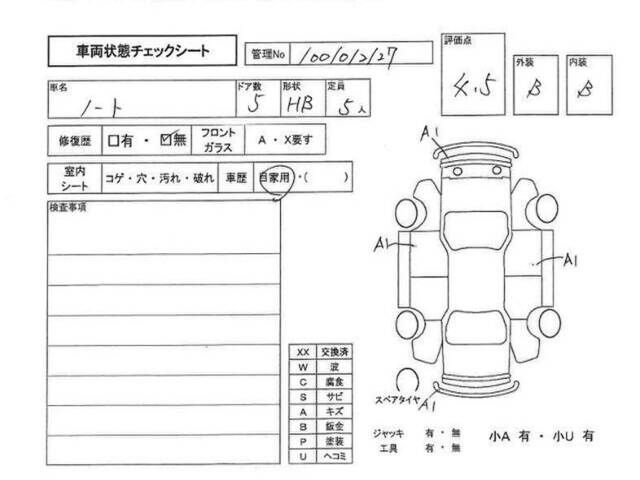 車両状態チェックシート
管理No 100/0/2/27
評価点 4.5
外装 B
内装 B
車名 ノート
ドア数 5
形状 HB
定員 5人
修復歴 □有・☑無
フロントガラス A・X要す
室内シート コゲ・穴・汚れ・破れ
車歴 自家用・( )
検査事項
A1
A1
A1
A1
XX 交換済
W 波
C 腐食
S サビ
A キズ
B 鈑金
P 塗装
U ヘコミ
スペアタイヤ
ジャッキ 有・無
工具 有・無
小A 有・小U 有